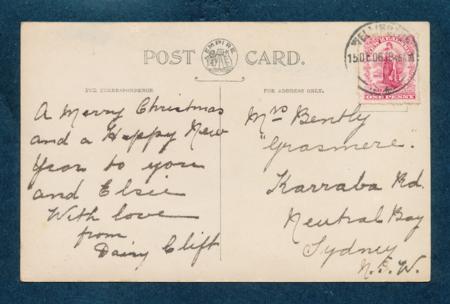 POST EMPIRE CARD.
FOR CORRESPONDENCE.
A Merry Christmas
and a Happy New
Year to you
and Elsie
With love
from
Daisy Clift
FOR ADDRESS ONLY.
Mrs Bently
"Grasmere".
Karraba Rd.
Neutral Bay
Sydney
N.S.W.
WELLINGTON
15 DE 06
ONE PENNY